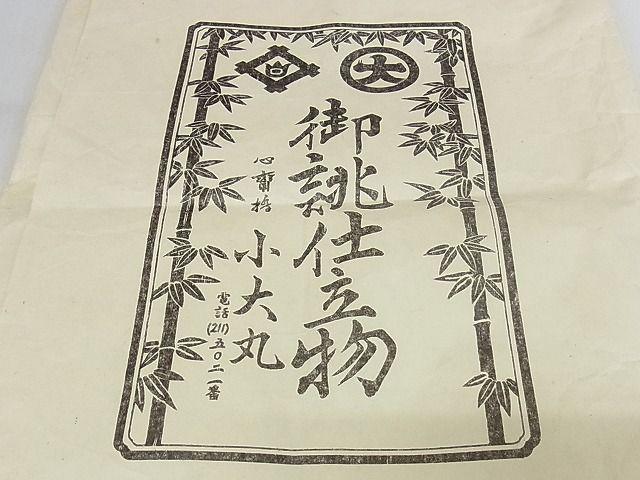 大
御誂仕立物
心齋橋
小大丸
電話
(211)五〇二一番